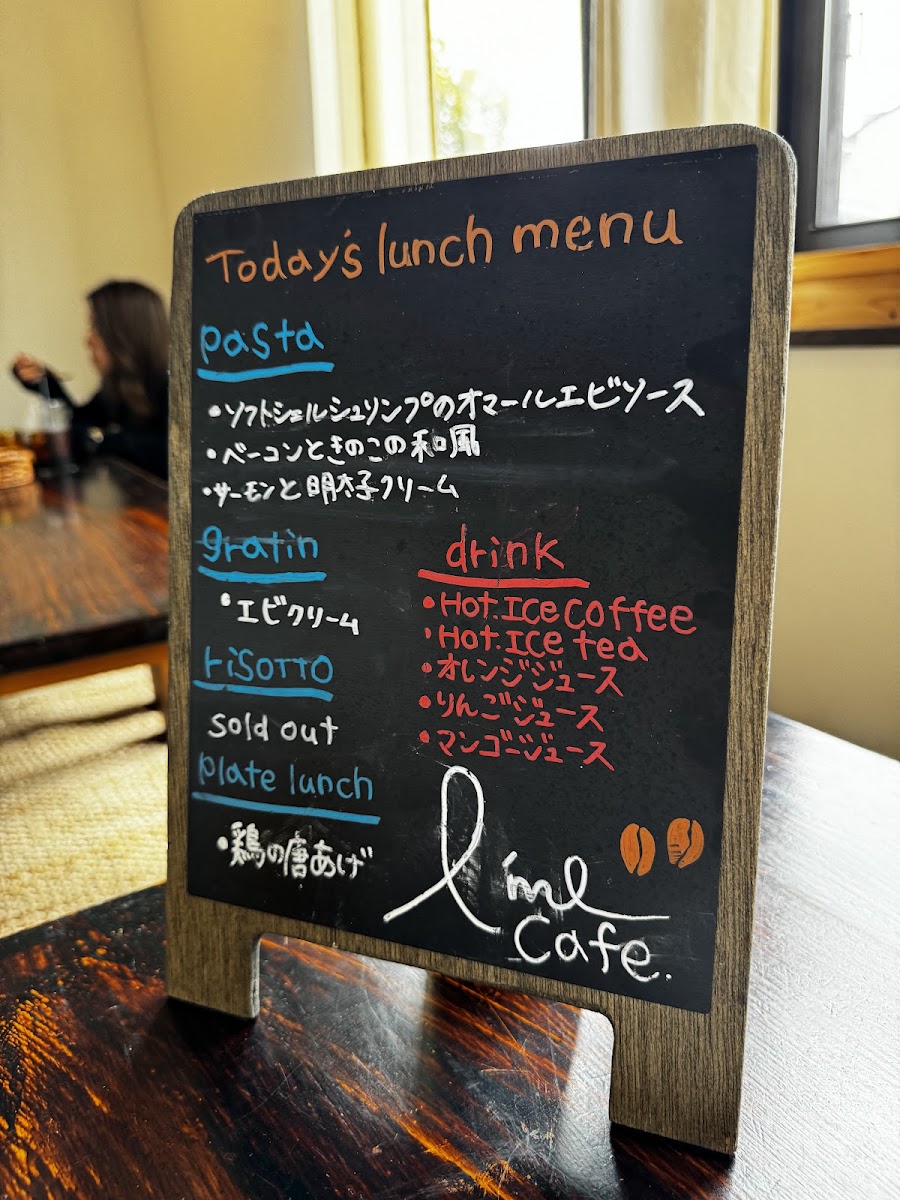 Today's lunch menu
pasta
・ソフトシェルシュリンプのオマールエビソース
・ベーコンときのこの和風
・サーモンと明太子クリーム
gratin
・エビクリーム
risotto
sold out
plate lunch
・鶏の唐あげ
drink
・Hot.Ice coffee
・Hot.Ice tea
・オレンジジュース
・りんごジュース
・マンゴージュース
l'ime
cafe.